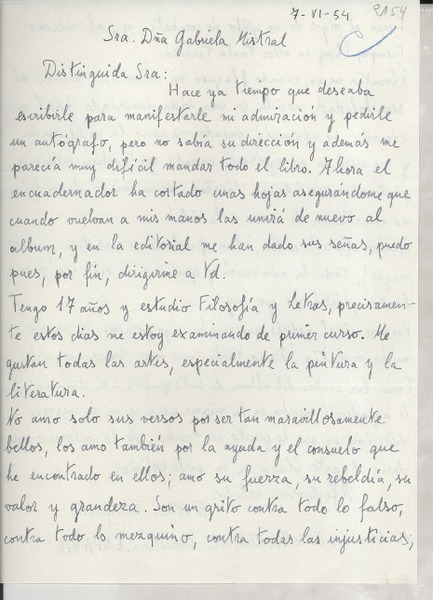 7-VI-54 2154
Sra. Dña Gabriela Mistral
Distinguida Sra:
Hace ya tiempo que deseaba
escribirle para manifestarle mi admiración y pedirle
un autógrafo, pero no sabía su dirección y además me
parecía muy difícil mandar todo el libro. Ahora el
encuadernador ha cortado unas hojas asegurándome que
cuando vuelvan a mis manos las unirá de nuevo al
album, y en la editorial me han dado sus señas, puedo
pues, por fin, dirigirme a Vd.
Tengo 17 años y estudio Filosofía y Letras, precisamen-
te estos dias me estoy examinando de primer curso. Me
gustan todas las artes, especialmente la pintura y la
literatura.
No amo solo sus versos por ser tan maravillosamente
bellos, los amo también por la ayuda y el consuelo que
he encontrado en ellos; amo su fuerza, su rebeldía, su
valor y grandeza. Son un grito contra todo lo falso,
contra todo lo mezquino, contra todas las injusticias;